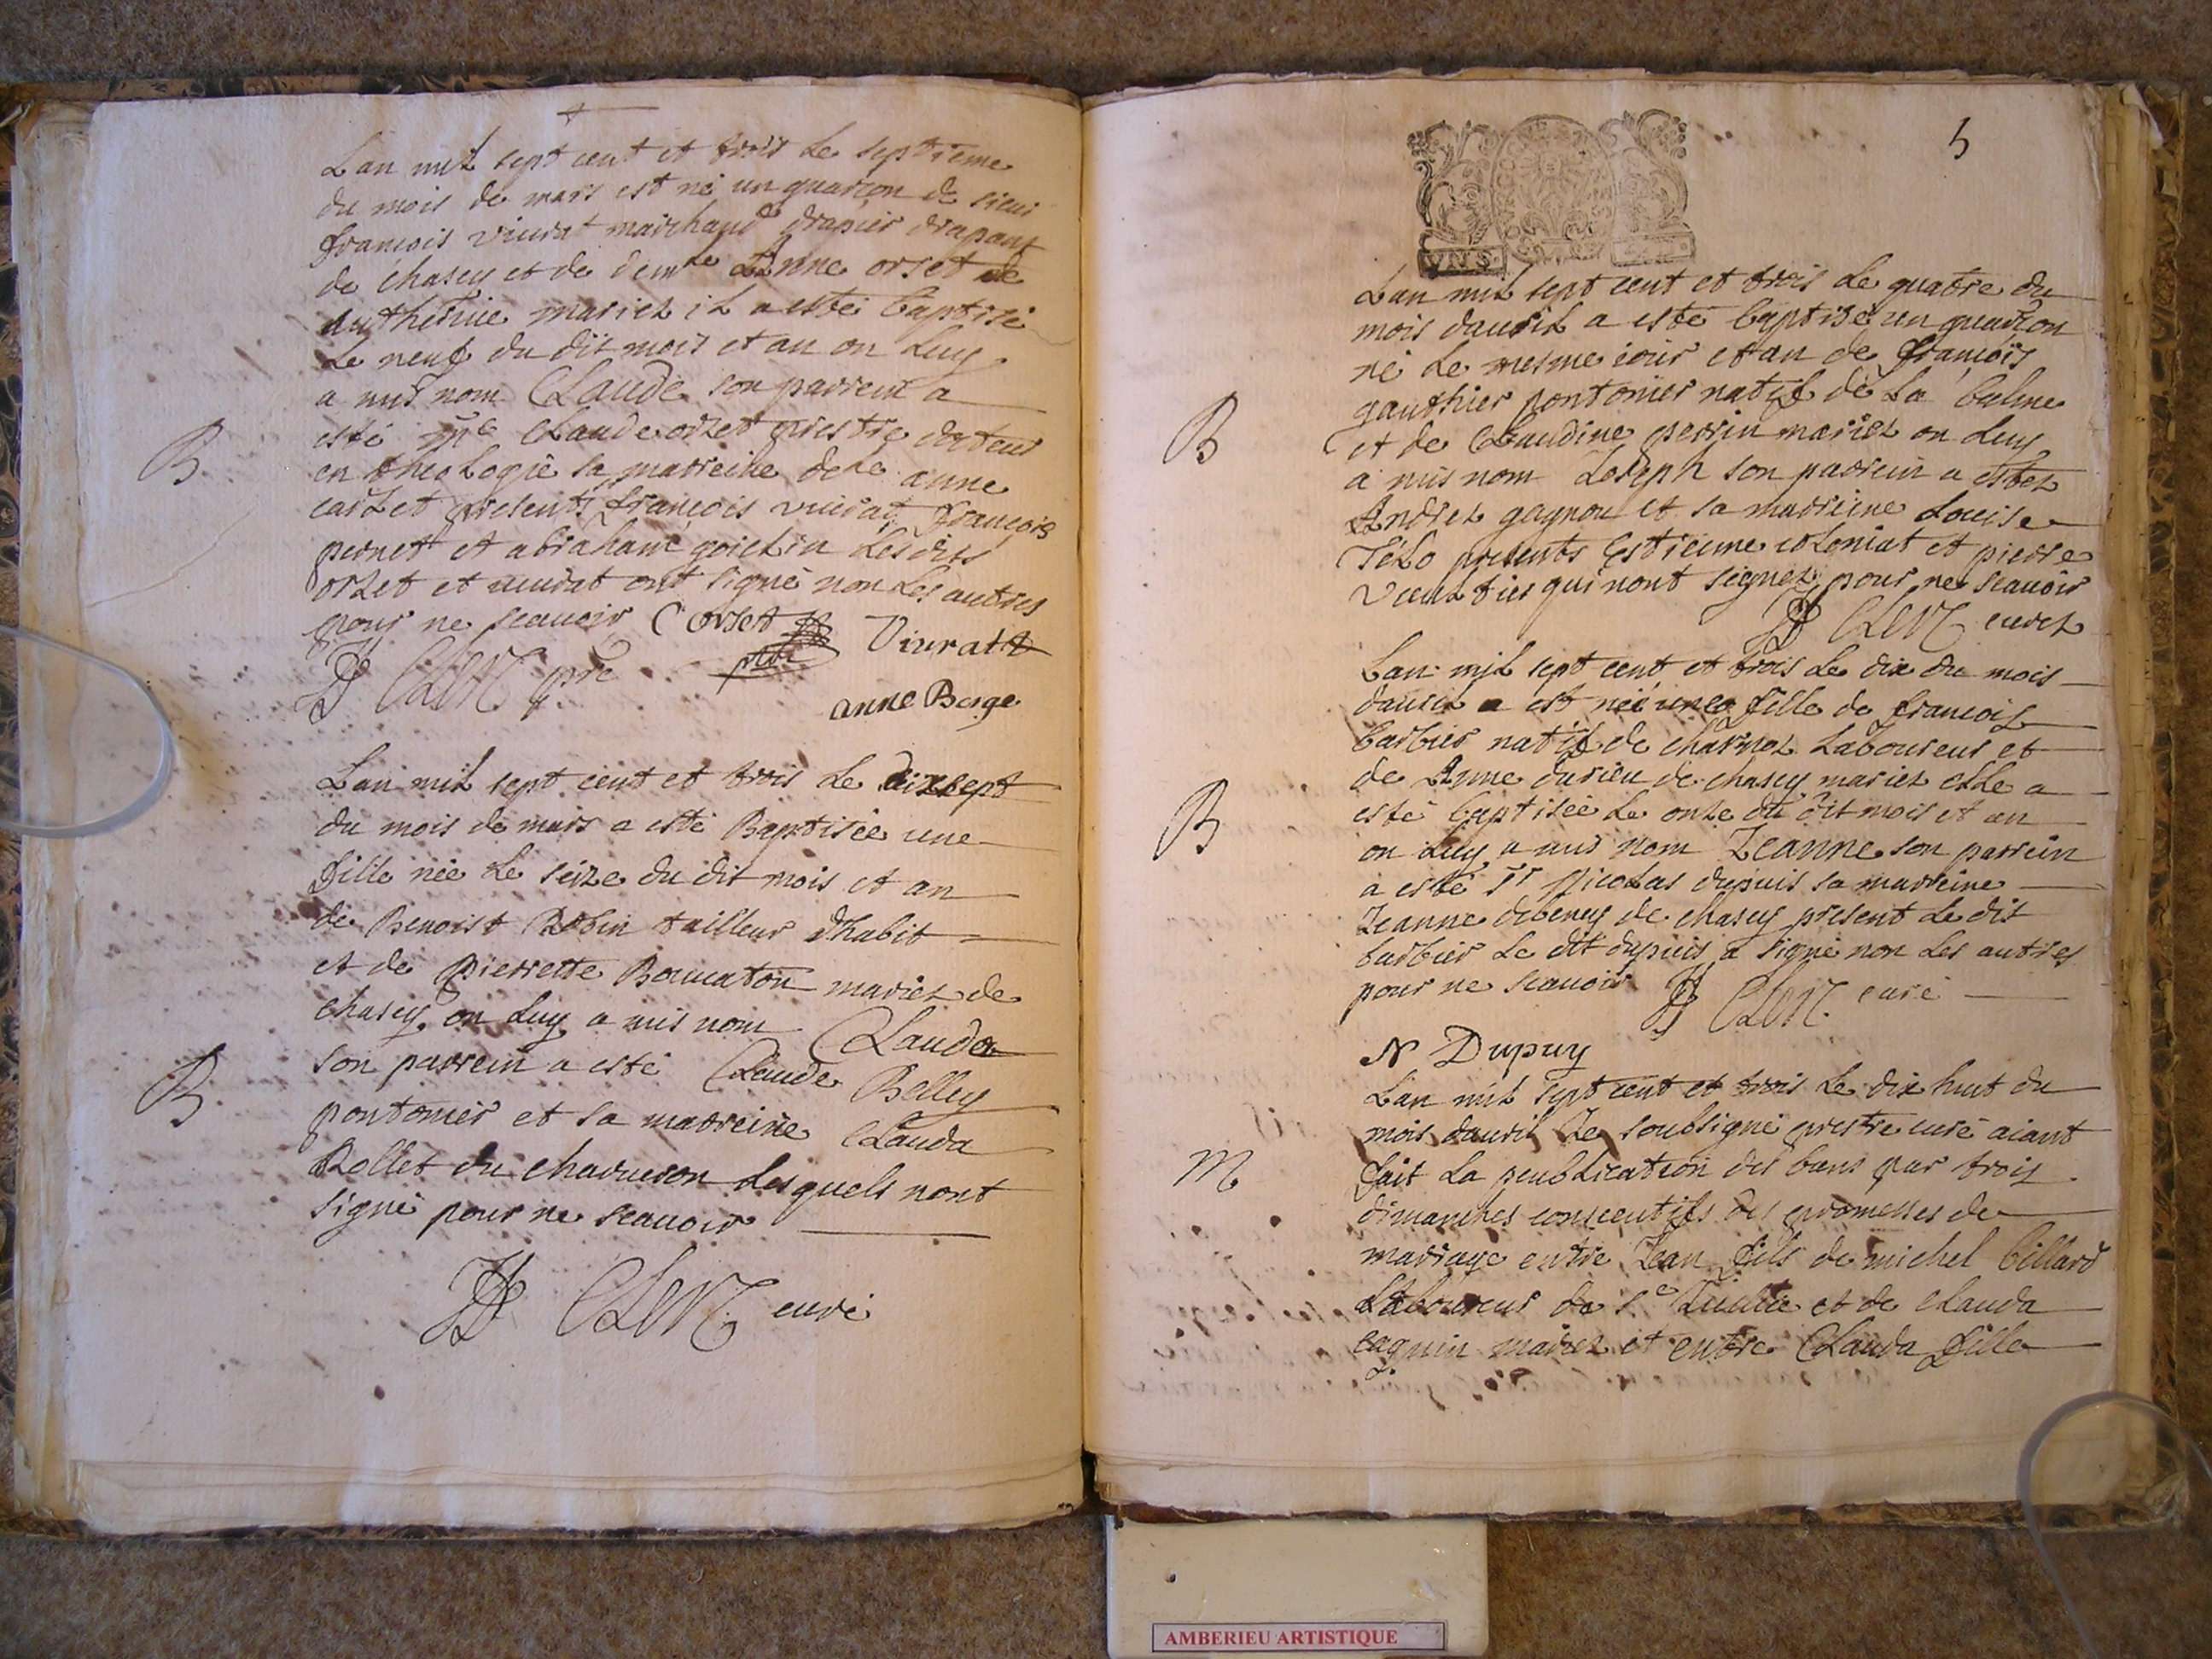 Lan mil sept cent et trois le septieme
du mois de mars est né un guarçon de sieur
françois viurat marchand drapier drapant
de chasey et de demle Anne orset de
mariez il a esté baptisé
le neuf du dit mois et an on luy
a mis nom Claude son parrein a
esté Claude orset prestre docteur
en theologie sa marreine delle anne
presents françois viurat françois
pernet et abraham les dits
orset et viurat ont signé non les autres
pour ne scauoir C orset Viuratt
Clerc pre
anne Berge
B
Lan mil sept cent et trois le dixsept
du mois de mars a esté Baptisée une
fille née le seize du dit mois et an
de Benoist Robin tailleur dhabit
et de pierrette mariez de
chasey on luy a mis nom Clauda
son parrein a esté Claude Belley
pontonier et sa marreine Clauda
Rollet du lesquels nont
signé pour ne scauoir
Clerc curé
B
5
VNS
Lan mil sept cent et trois le quatre du
mois dauril a esté baptisé un guarçon
né le mesme iour et an de françois
gauthier pontonier natif de la balme
et de Claudine perrin mariez on luy
a mis nom Ioseph son parrein a estez
Andrez gagnon et sa marreine Louise
presents Estienne et pierre
qui nont signez pour ne scauoir
Clerc curez
B
Lan mil sept cent et trois le dix du mois
dauril a est née une fille de françois
barbier natif de laboureur et
de Anne durieu de chasey mariez elle a
esté baptisée le onze du dit mois et an
on luy a mis nom Ieanne son parrein
a esté sr Nicolas dupuis sa marreine
Ieanne debeney de chasey present le dit
barbier le dit dupuis a signé non les autres
pour ne scauoir Clerc curé
N Dupuy
B
Lan mil sept cent et trois le dix huit du
mois dauril Ie soubsigné prestre curé aiant
fait la publication des bans par trois
dimanches consecutifs des promesses de
mariage entre Iean fils de michel billard
Laboureur de Ste Iullie et de clauda
mariez et entre Clauda fille
M
AMBERIEU ARTISTIQUE